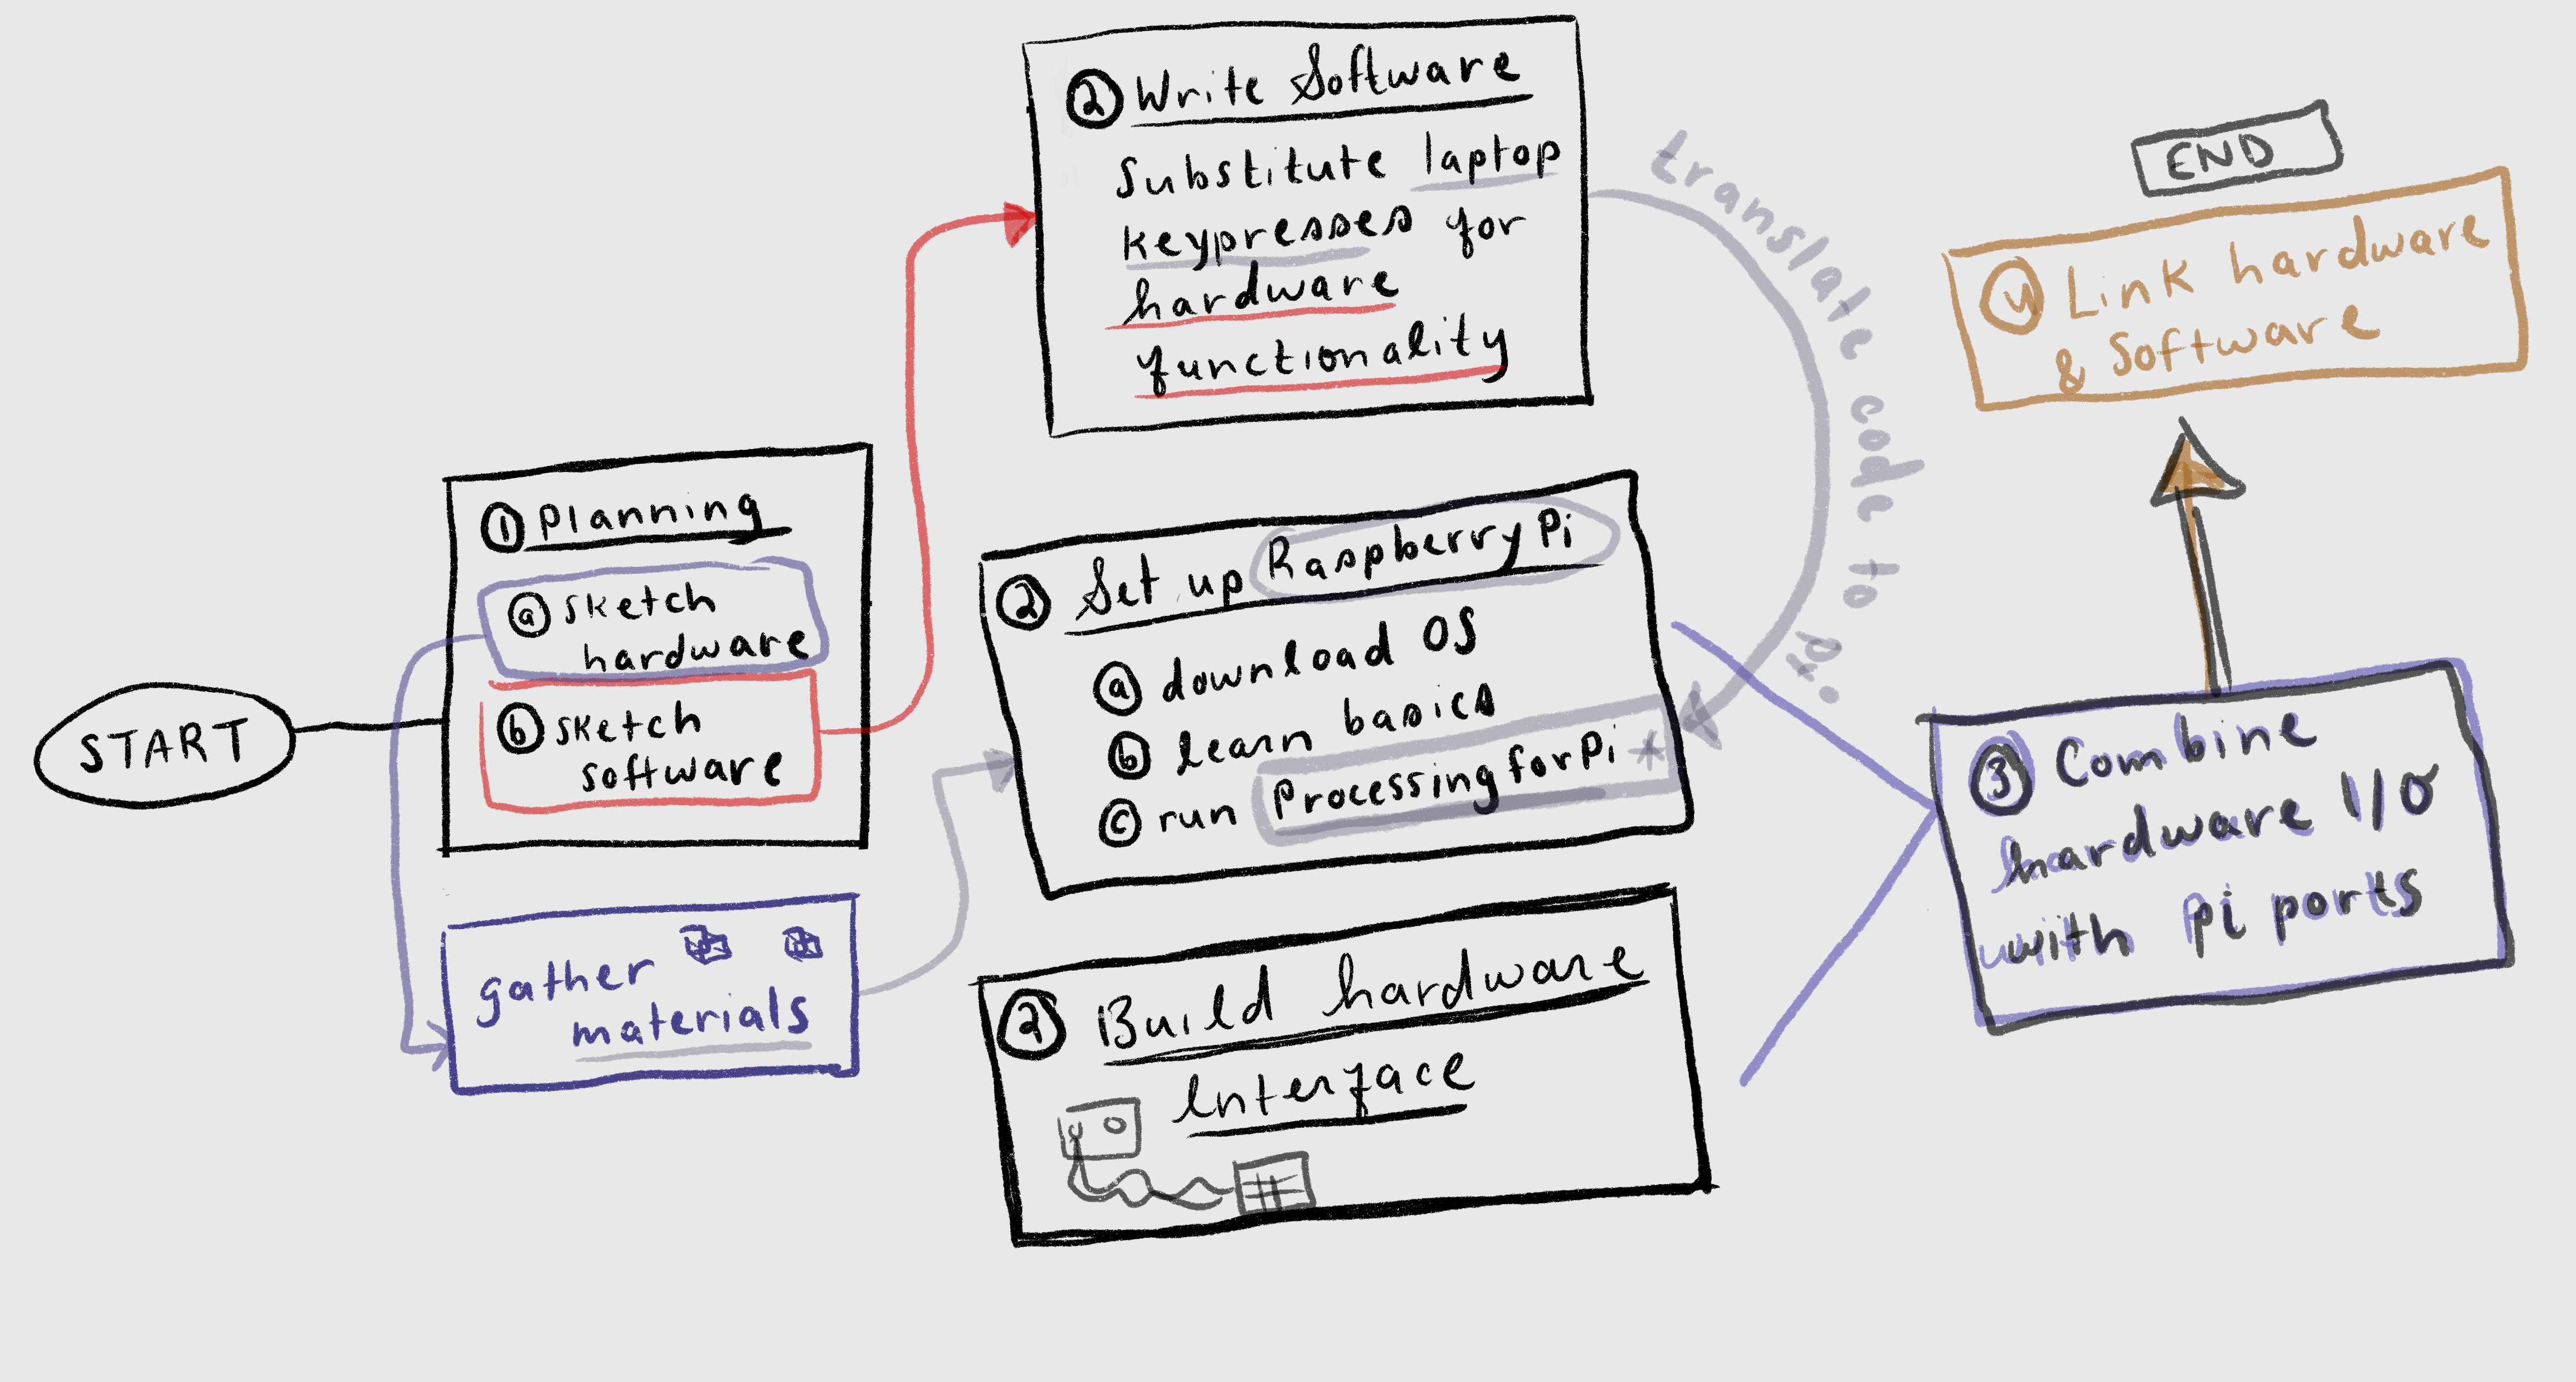 START
① Planning
ⓐ sketch
hardware
ⓑ sketch
software
gather
materials
② Write Software
Substitute laptop
keypresses for
hardware
functionality
② Set up Raspberry Pi
ⓐ download OS
ⓑ learn basics
ⓒ run Processing for Pi *
② Build hardware
Interface
translate code to Pi.
③ Combine
hardware I/O
with pi ports
④ Link hardware
& Software
END